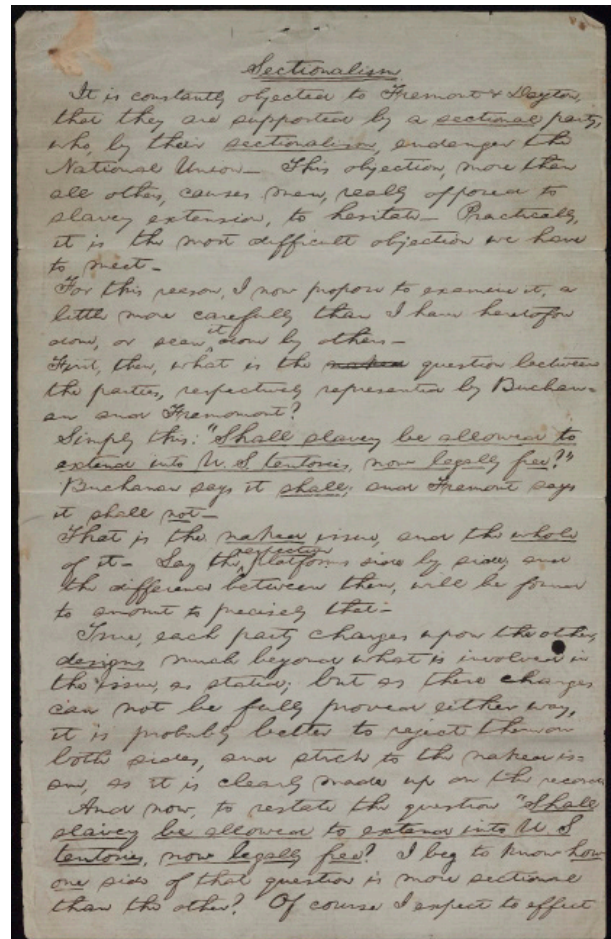 Sectionalism
It is constantly objected to Fremont & Dayton,
that they are supported by a sectional party,
who, by their sectionalism, endanger the
National Union— This objection, more than
all others, causes men, really opposed to
slavery extension, to hesitate— Practically,
it is the most difficult objection we have
to meet—
For this reason, I now propose to examine it, a
little more carefully than I have heretofore
done, or seen it done by others—
First, then, what is the naked question between
the parties, respectively represented by Buchan=
an and Fremont?
Simply this: "Shall slavery be allowed to
extend into U. S. teritories, now legally free?"
Buchanan says it shall; and Fremont says
it shall not—
That is the naked issue, and the whole
of it— Lay the respective platforms side by side; and
the difference between them, will be found
to amount to precisely that—
True, each party charges upon the other,
designs much beyond what is involved in
the issue, as stated; but as these charges
can not be fully proved either way,
it is probably better to reject them on
both sides, and stick to the naked is=
sue, as it is clearly made up on the record
And now, to restate the question "Shall
slavery be allowed to extend into U. S.
teritories, now legally free? I beg to know how
one side of that question is more sectional
than the other? Of course I expect to effect